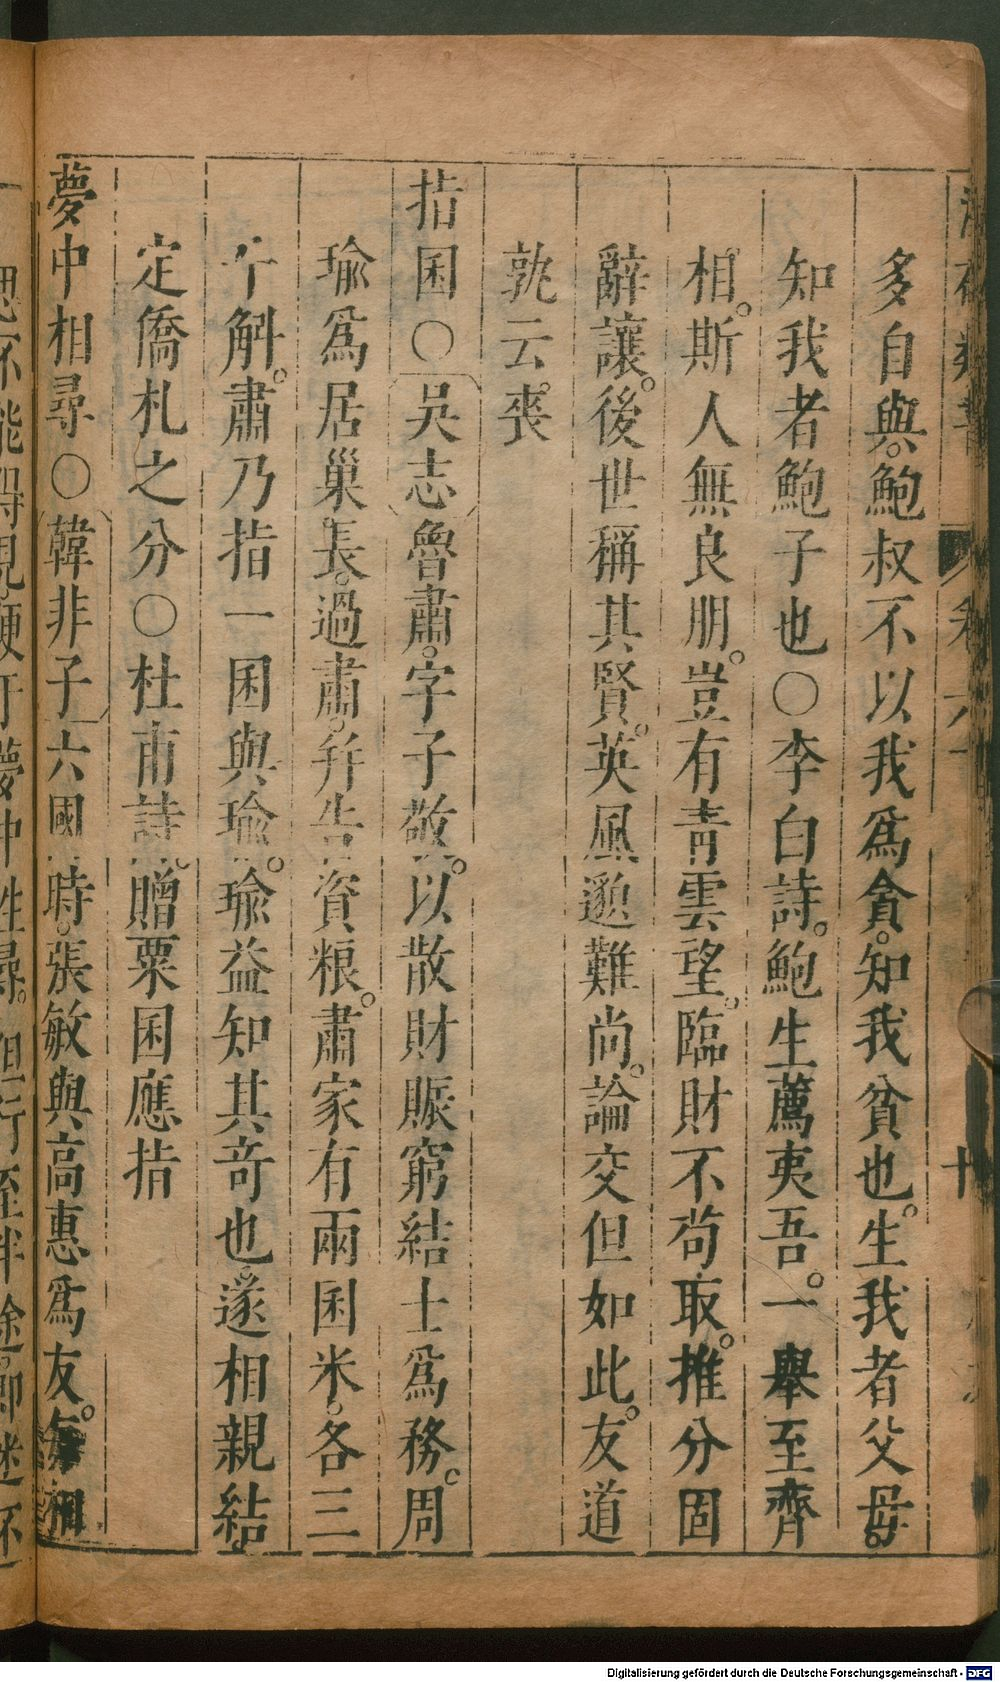 多自與。鮑叔不以我爲貪。知我貧也。生我者父母。
知我者鮑子也〇李白詩。鮑生薦夷吾。一舉至齊
相。斯人無良朋。豈有青雲望。臨財不苟取。推分固
辭讓。後世稱其賢。英風邈難尚。論交但如此。友道
孰云喪
指囷〇吳志魯肅。字子敬。以散財賑窮結士爲務。周
瑜爲居巢長。過肅。幷告資粮。肅家有兩囷米。各三
千斛。肅乃指一囷與瑜。瑜益知其奇也。遂相親結。
定僑札之分〇杜甫詩。贈粟囷應指
夢中相尋〇韓非子六國時。張敏與高惠爲友。每相
思不能得見。便於夢中往尋。但行至半途。卽迷不
卷六
十
Digitalisierung gefördert durch die Deutsche Forschungsgemeinschaft - DFG